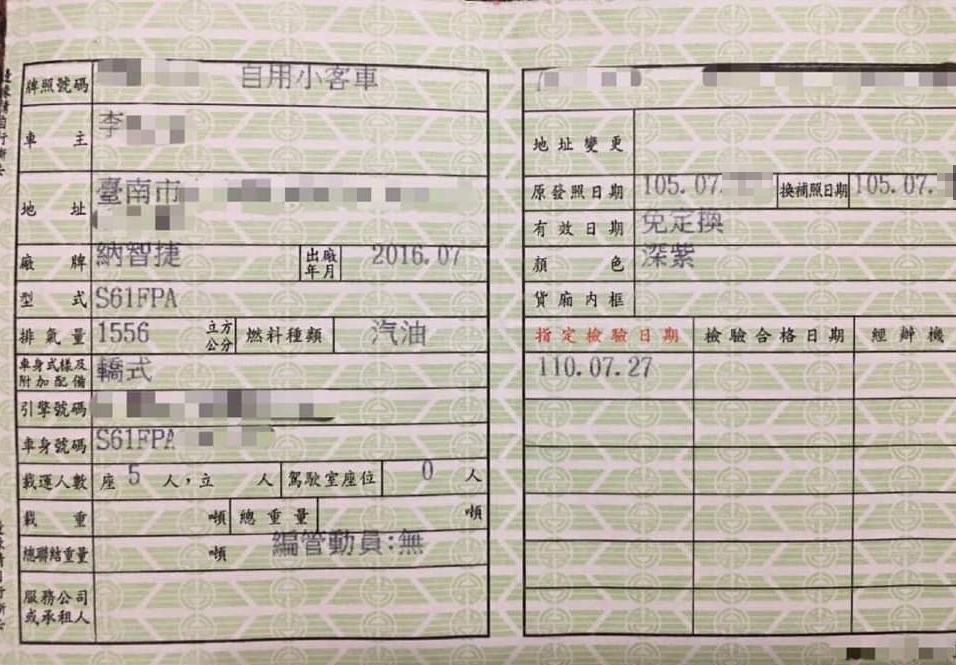 牌照號碼 自用小客車
車主 李
地址 臺南市
廠牌 納智捷 出廠年月 2016.07
型式 S61FPA
排氣量 1556 立方公分 燃料種類 汽油
車身式樣及附加配備 轎式
引擎號碼
車身號碼 S61FPA
載運人數 座 5 人,立 人 駕駛室座位 0 人
載重 噸 總重量 噸
總聯結重量 噸 編管動員:無
服務公司或承租人
地址變更
原發照日期 105.07. 換補照日期 105.07.
有效日期 免定換
顏色 深紫
貨廂內框
指定檢驗日期 檢驗合格日期 經辦機
110.07.27